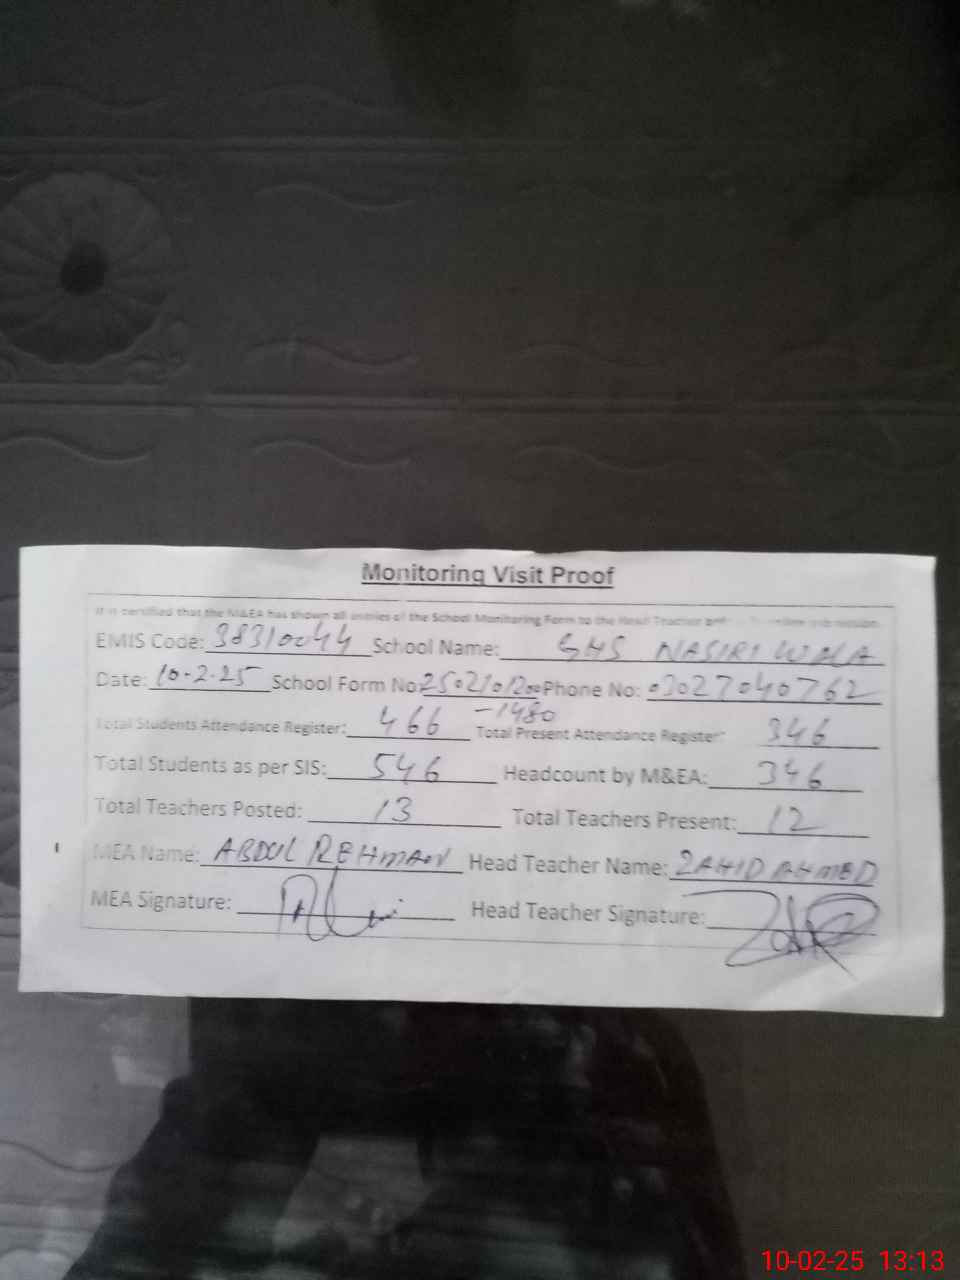 Monitoring Visit Proof
It is certified that the M&EA has shown all entries of the School Monitoring Form to the Head Teacher before online submission.
EMIS Code: 38310044 School Name: GHS NASIRI WALA
Date: 10-2-25 School Form No: 250210120 Phone No: 03027040762
-1480
Total Students Attendance Register: 466 Total Present Attendance Register: 346
Total Students as per SIS: 546 Headcount by M&EA: 346
Total Teachers Posted: 13 Total Teachers Present: 12
MEA Name: ABDUL REHMAN Head Teacher Name: ZAHID AHMED
MEA Signature: Head Teacher Signature:
10-02-25 13:13